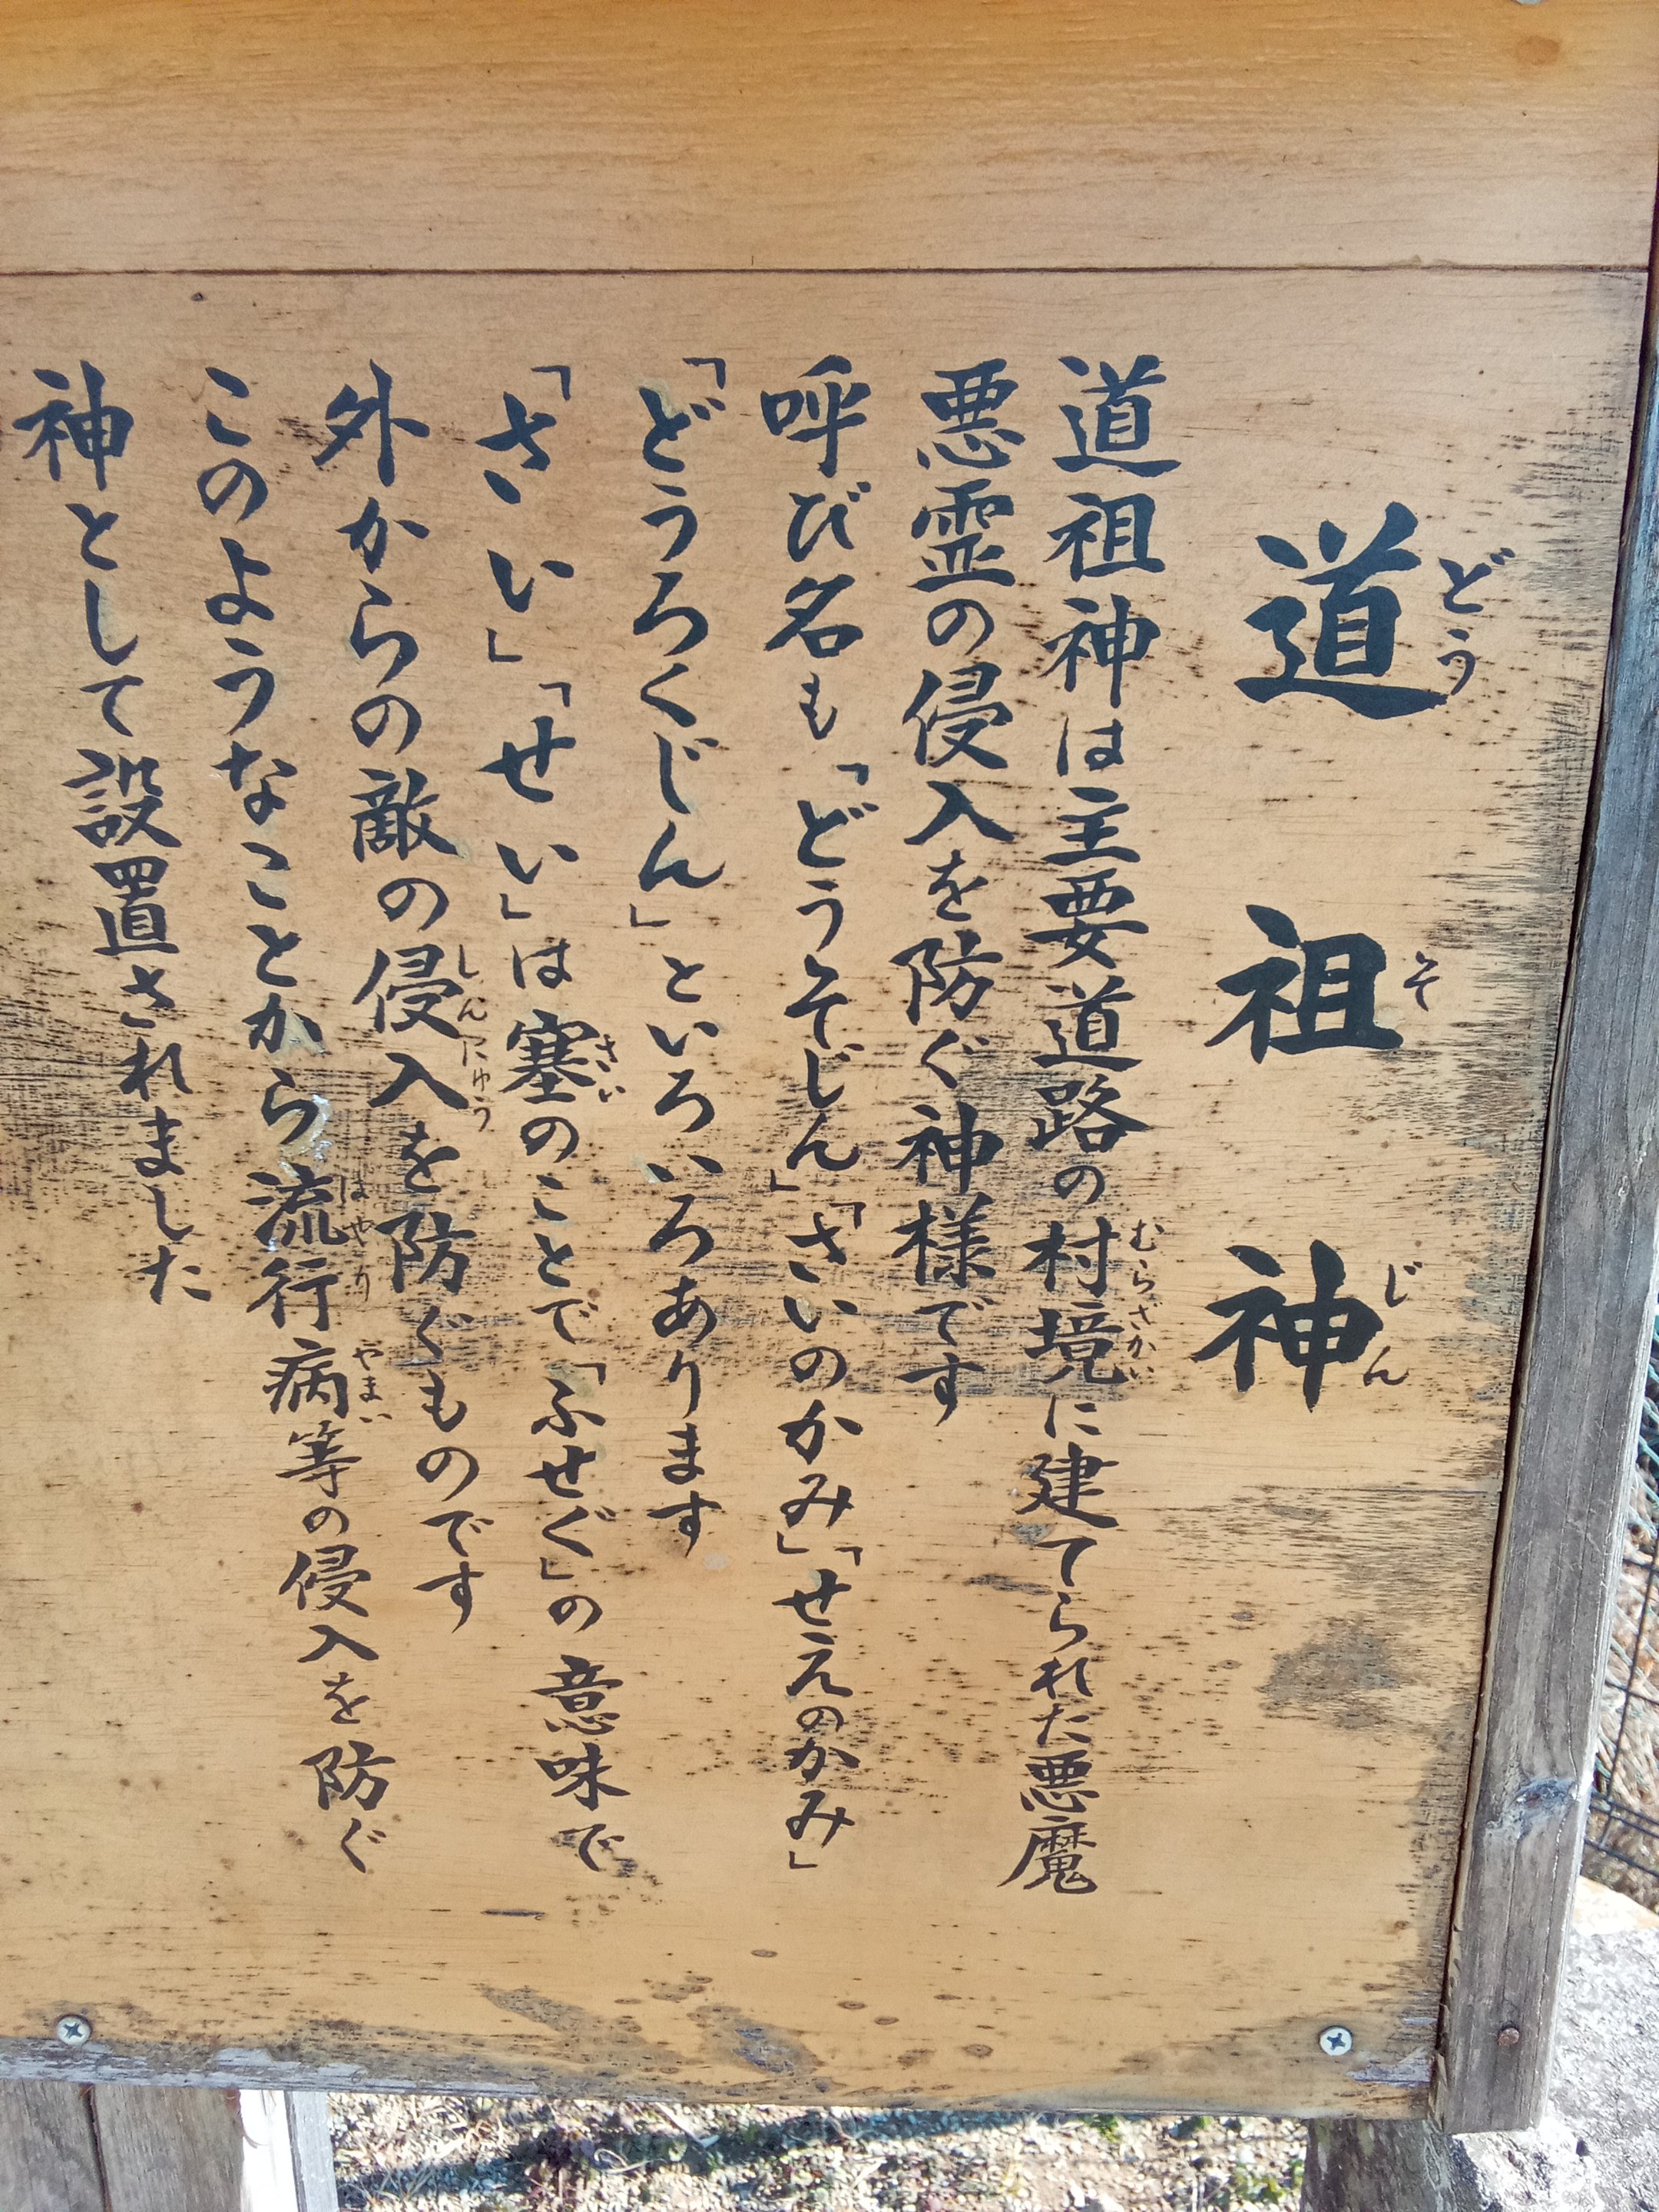 道祖神
どうそじん
道祖神は主要道路の村境に建てられた悪魔
むらざかい
悪霊の侵入を防ぐ神様です
呼び名も「どうそじん」「さいのかみ」「せえのかみ」
「どうろくじん」といろいろあります
「さい」「せい」は塞のことで「ふせぐ」の意味で
さい
外からの敵の侵入を防ぐものです
しんにゅう
このようなことから流行病等の侵入を防ぐ
はやりやまい
神として設置されました